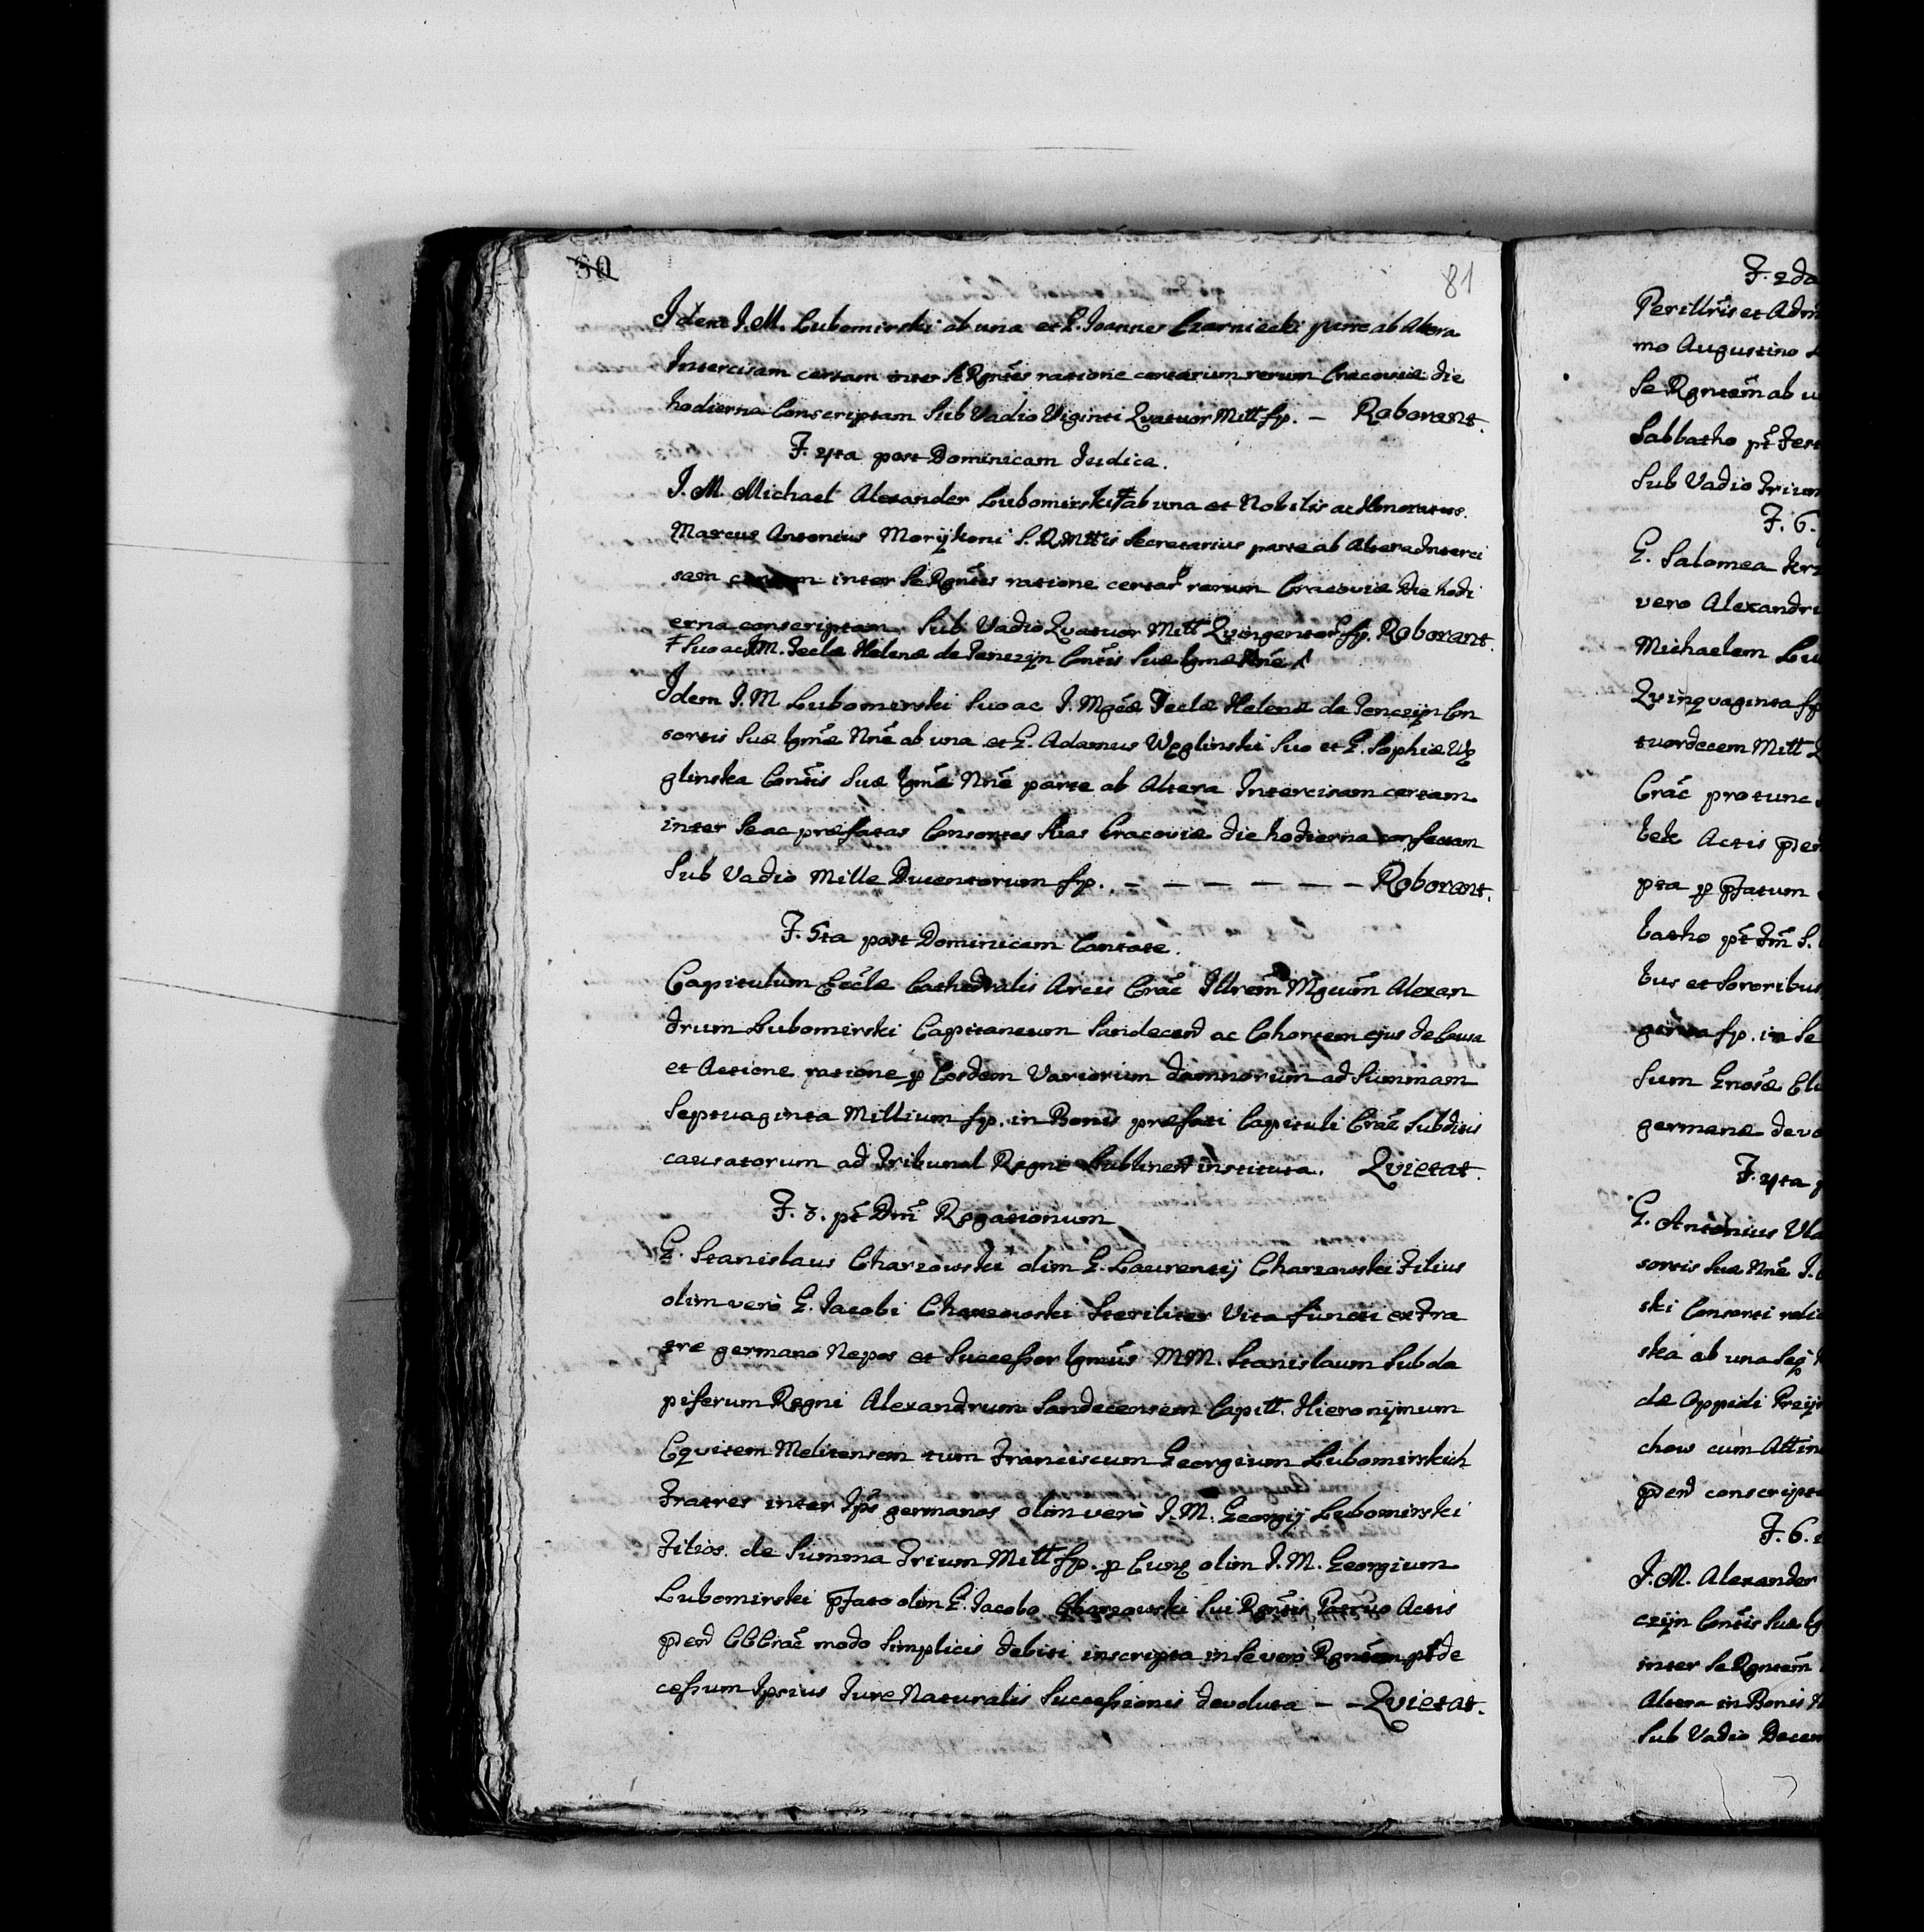 50
81
Idem I. M. Lubomirski ab una et G. Joannes Czarniecki parte ab Altera
Intercisam certam inter Se Rgntes ratione certarum rerum Cracoviæ die
hodierna Conscriptam Sub Vadio Viginti Qvatuor Mill fp. – Roborant.
F. 4ta post Dominicam Judica.
I. M. Michael Alexander Lubomirski ŧ ab una et Nobilis ac Honoratus
Marcus Antonius Moryikoni S. R. Mttis Secretarius parte ab Altera Interci
sam inter Se Rgntes ratione certar rerum Cracoviæ die hodi
erna conscriptam Sub Vadio Qvatuor Mill Qvingentor fp. Roborant.
ŧ Suo ac I M. Teclæ Helenæ de Tenczyn Contis Suæ Igmæ Nnē
Idem I. M Lubomirski Suo ac I. Mgcæ Teclæ Helenæ de Tenczyn Con
sortis Suæ Igmē Nnē ab una et G. Adamus Węglinski Suo et G. Sophiæ Wę
glinska Contis Suæ Igmē Nnē parte ab Altera Intercisam certam
inter Se ac præfatas Consortes Suas Cracoviæ die hodierna confectam
Sub Vadio Mille Ducentorum fp. – – – – – – Roborant.
F. 5ta post Dominicam Cantate.
Capitulum Ecclæ Cathedralis Arcis Crac Illrem Mgcum Alexan
drum Lubomirski Capitaneum Sandecen ac Cohortem ejus de Causa
et Actione ratione p Eosdem Variorum damnorum ad Summam
Septuaginta Millium fp. in Bonis præfati Capituli Crac Subditis
causatorum ad Tribunal Regni Lublinen instituta. Qvietat.
F. 3. pt Dm Rogationum
G. Stanislaus Charzowski olim G. Laurentij Charzowski Filius
olim vero G. Jacobi Charzowski Steriliter Vita functi ex Fra
tre germano Nepos et Successor Igmus MM. Stanislaum Subda
piferum Regni Alexandrum Sandecensem Capitt. Hieronijmum
Eqvitem Melitensem tum Franciscum Georgium Lubomirskich
Fratres inter Ips germanos olim vero I. M. Georgij Lubomirski
Filios de Summa Trium Mill fp. p Eunq olim I. M. Georgium
Lubomirski pfato olim G. Jacobo Charzowski Sui Rgntis Patruo Actis
pen CCCrac modo Simplicis debiti inscripta in Se vero Rgntem pt de
cessum Ipsius Jure Naturalis Successionis devoluta – – Qvietat.
F. 2da
Perillris et Adm
mo Augustino
Se Rgntem ab u
Sabbatho pt Fest
Sub Vadio Trium
F. 6.
G. Salomea
vero Alexandri
Michaelem Lu
Qvinqvaginta fp
tuordecem Mill
Crac pro tunc
Actis pen
pta p pfatum
batho pt Fm S.
bus et Sororibus
ginta fp. in Se
Sum Gnosæ
germanæ devo
F. 4ta
G. Antonius Vla
sortis Suæ Nnē I.
ski Consorti reli
ska ab una Seq
de Oppidi
chow cum Attin
pen conscript
F. 6.
I. M. Alexander
czyn Contis Suæ Ig
inter Se Rgntem
Altera in Bonis
Sub Vadio Decem